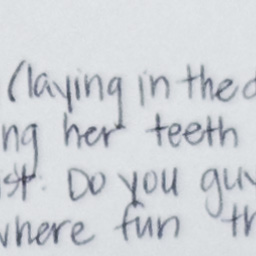 (laying in the
her teeth
Do you
where fun